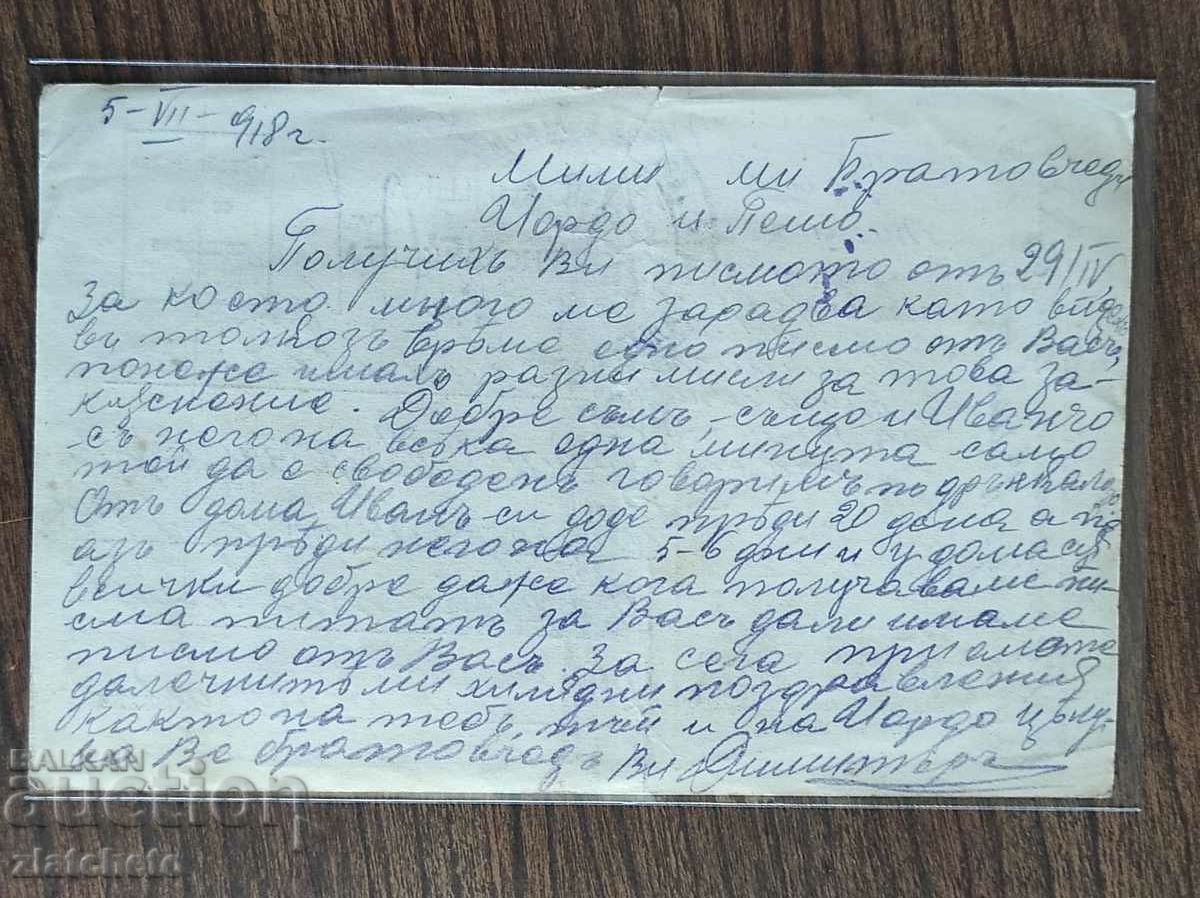 5-VII-918 г.
Мили ми Братовчеди
Иордо и Пешо.
Получихъ Ви писмото отъ 29/IV
За което много ме зарадва като видохъ
въ толкозъ врѣме едно писмо отъ Васъ,
понеже имахъ разни мисли за това за-
къснение. Добре съмъ, също и Иванчо
съ него на всѣка една минута само
той да е свободенъ говоримъ по
Отъ дома Иванъ си доде прѣди 20 дена а
азъ прѣди него на 5-6 дни и у дома сѫ
всички добре даже кога получаваме пи-
сма питатъ за Васъ дали имаме
писмо отъ Васъ. За сега приемете
далечнитѣ ми хилядни поздравления
както на тобъ, тъй и на Иордо цѣлу-
ва Ве братовчедъ Ви Димитъръ
BALKAN
auction
zlatcheto